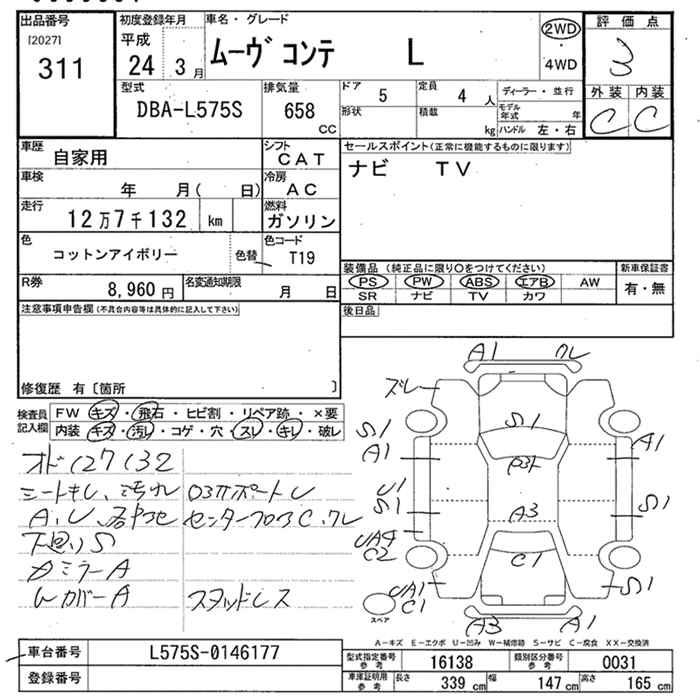 出品番号
[2027]
311
初度登録年月
平成
24 3月
車名・グレード
ムーヴ コンテ L
2WD
・
4WD
評価点
3
外装 内装
C C
型式
DBA-L575S
排気量
658
CC
ドア 5
形状
定員 4 人
積載 kg
ディーラー・並行
モデル年式 年
ハンドル 左・右
車歴
自家用
シフト
CAT
車検
年 月( 日)
冷房
AC
走行
12万7千132 km
燃料
ガソリン
色
コットンアイボリー
色替
色コード
T19
R券
8,960 円
名変通知期限
月 日
セールスポイント(正常に機能するものに限ります)
ナビ TV
装備品 (純正品に限り○をつけてください)
PS PW ABS エアB AW
SR ナビ TV カワ
新車保証書
有・無
後日品
注意事項申告欄(不具合内容等は具体的に記入して下さい)
修復歴 有〔箇所 〕
検査員
記入欄
FW キズ・飛石・ヒビ割・リペア跡・×要
内装 キズ・汚れ・コゲ・穴・スレ・キレ・破レ
オド127132
シートキレ、汚れ
下廻りS
カミラーA
WカバーA スタッドレス
A1
クレ
ズレ
S1
S1
A1
A1
U1
S1
A3
S1
UA4
C2
C1
UA1
C1
S1
A3
A1
スペア
A-キズ E-エクボ U-凹み W-補修跡 S-サビ C-腐食 XX-交換済
車台番号
L575S-0146177
登録番号
型式指定番号
参考
16138
類別区分番号
参考
0031
車庫証明用
参考
長さ 339 cm
幅 147 cm
高さ 165 cm